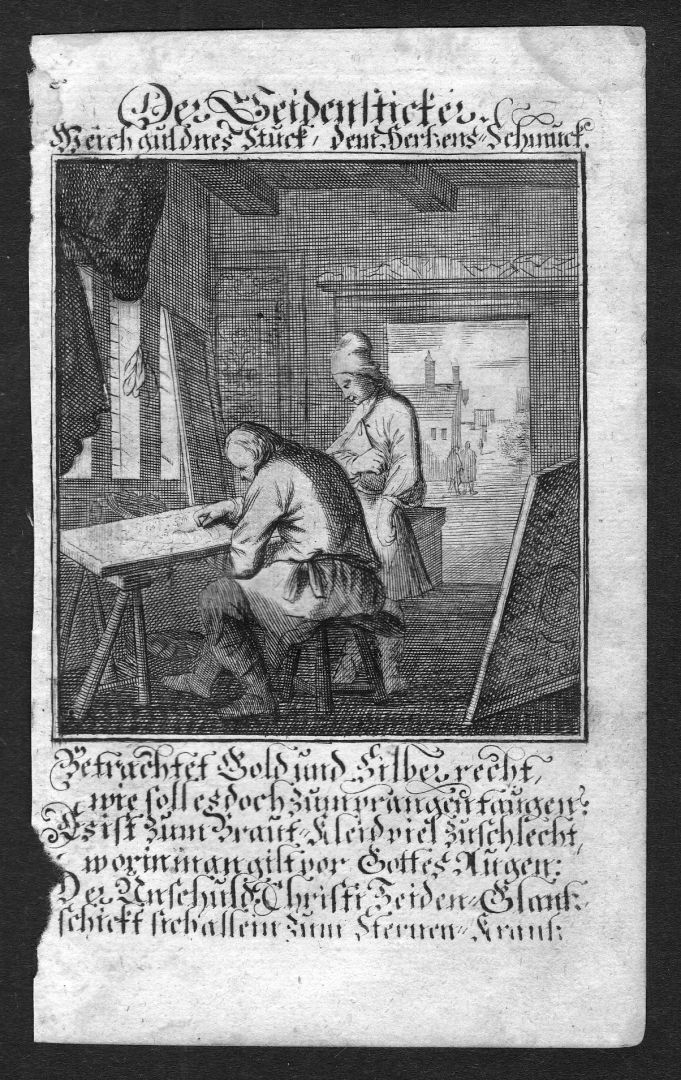 Der Seidensticker.
Weich guldnes Stuck, dem Hertzens-Schmuck.
Betrachtet Gold und Silber recht,
wie soll es doch zum prangen taugen?
Es ist zum Braut-Kleid viel zu schlecht,
worin man gilt vor Gottes Augen:
Der Unschuld Christi Seiden-Glantz
schickt sich allein zum Sternen-Krantz